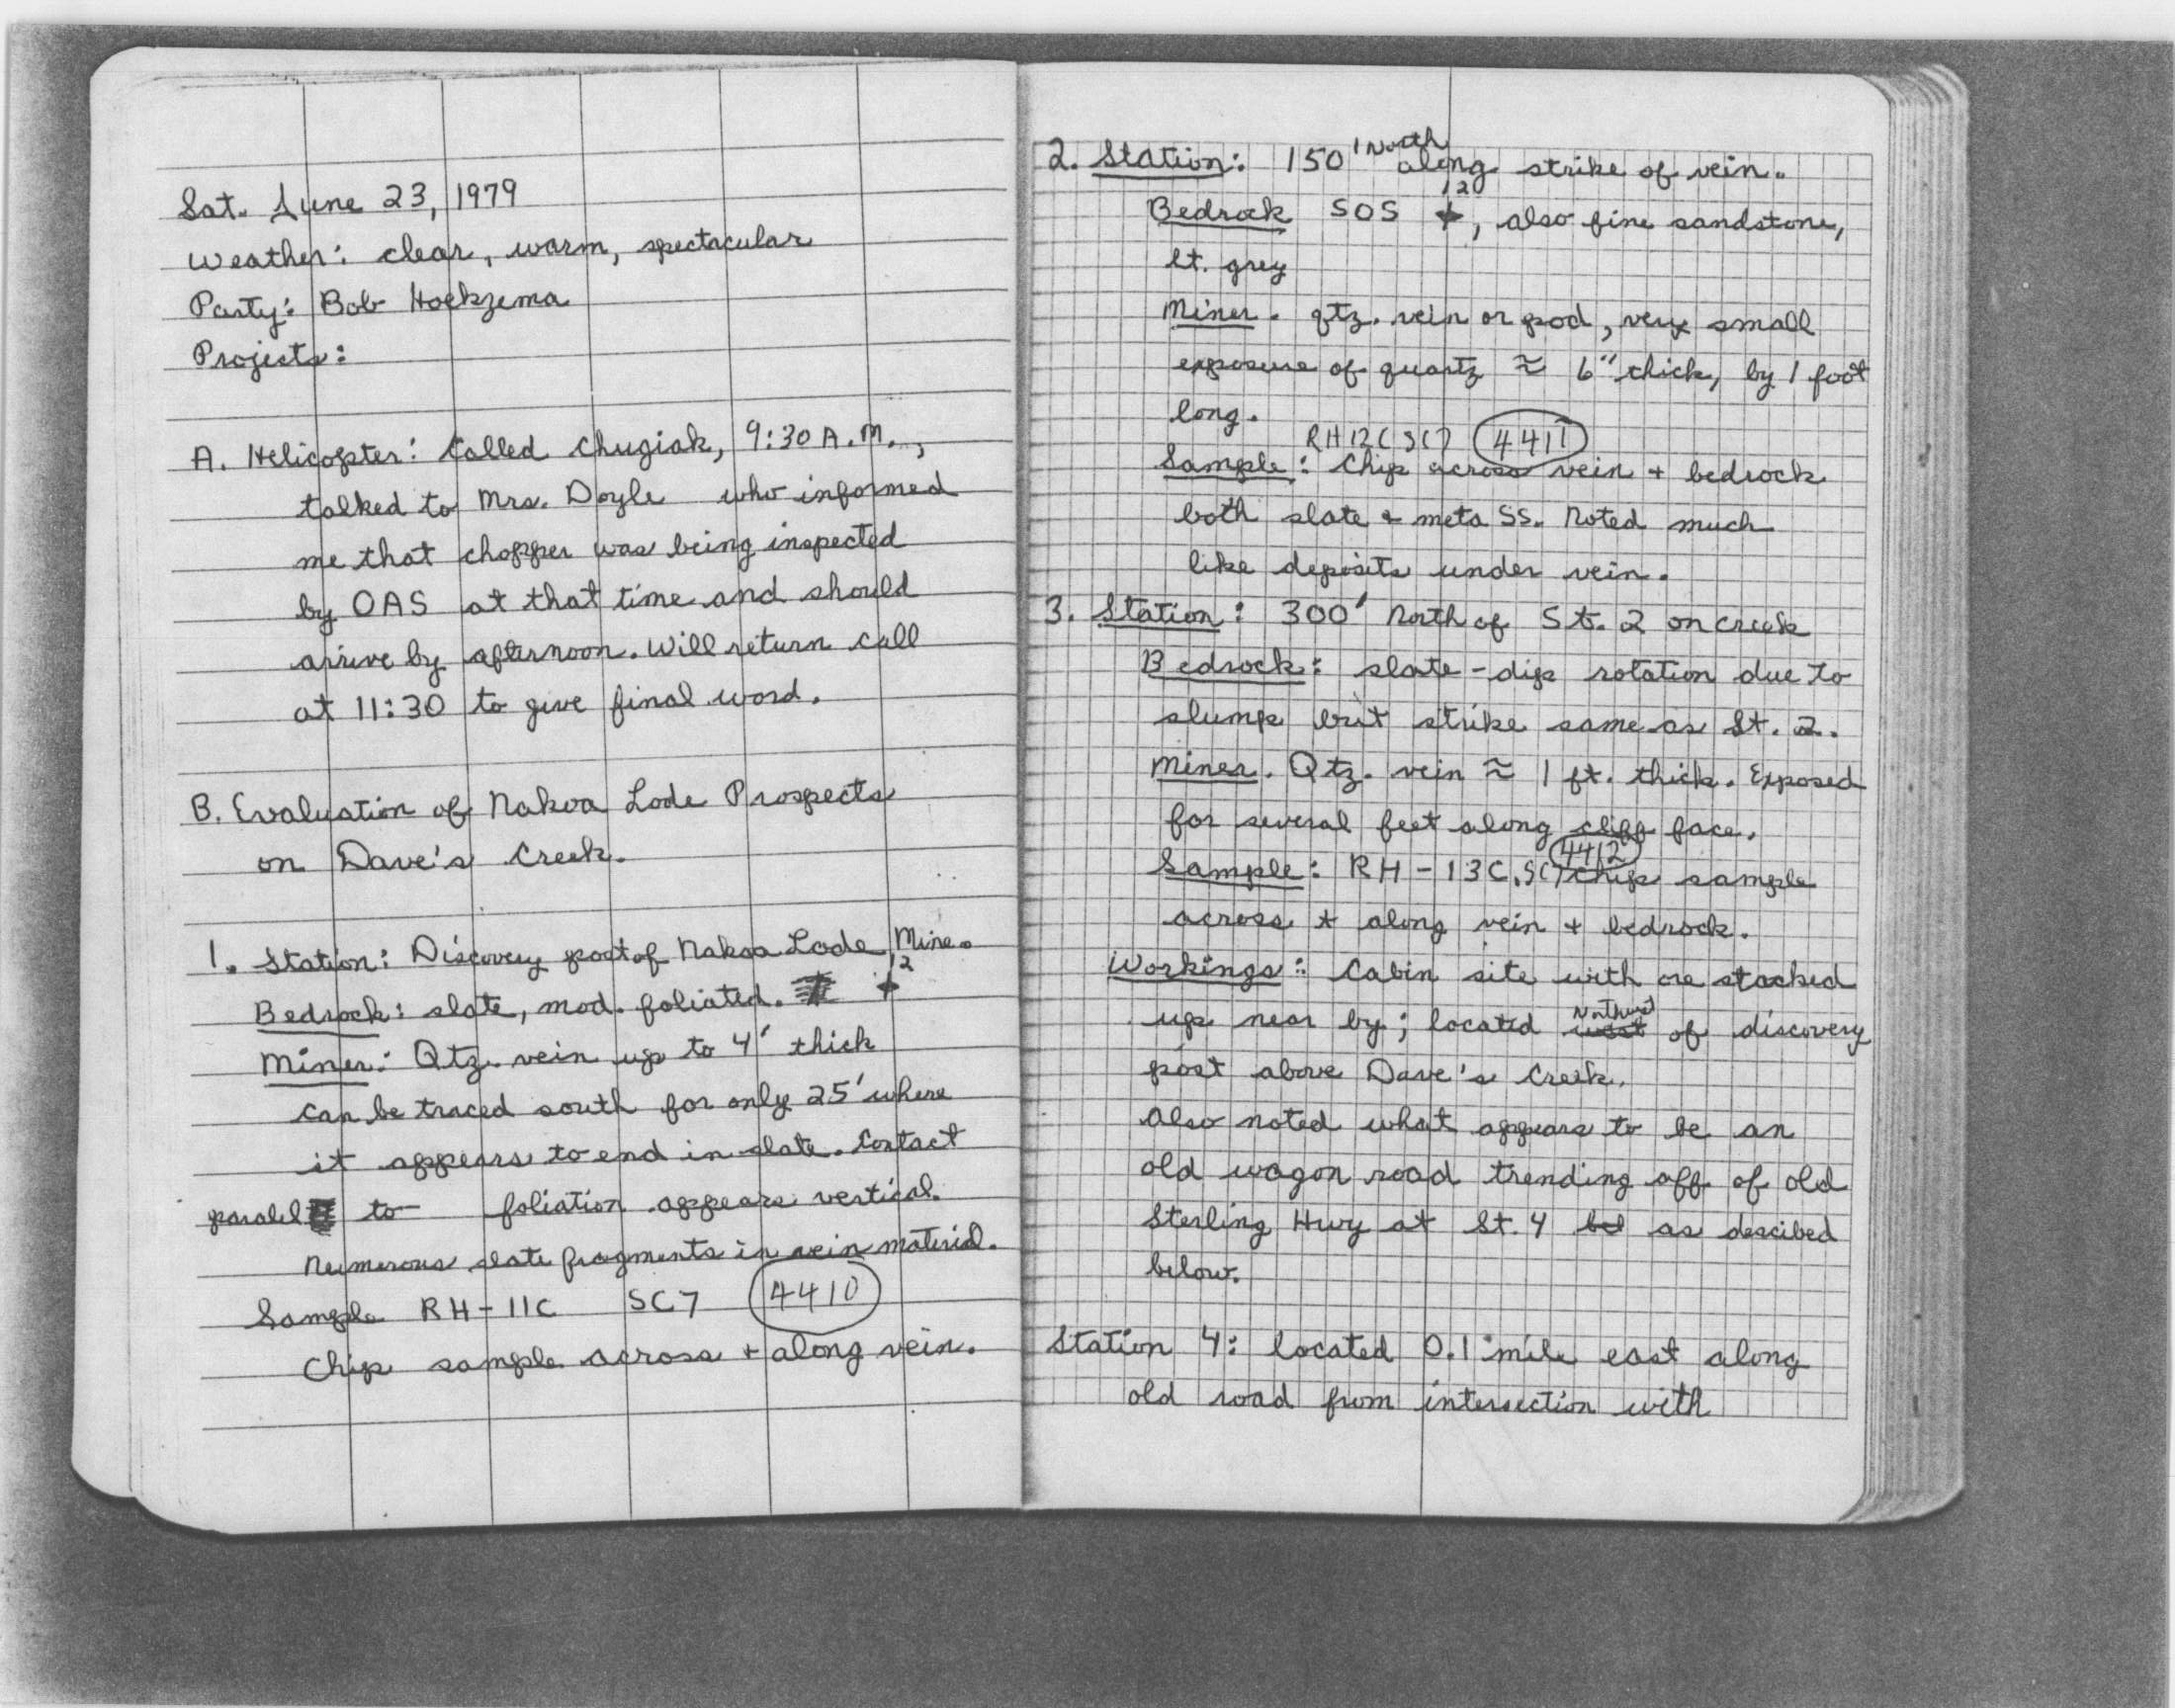 Sat. June 23, 1979
Weather: clear, warm, spectacular
Party: Bob Hoekzema
Projects:
A. Helicopter: Called Chugiak, 9:30 A.M.,
talked to Mrs. Doyle who informed
me that chopper was being inspected
by OAS at that time and should
arrive by afternoon. Will return call
at 11:30 to give final word.
B. Evaluation of Nakoa Lode Prospects
on Dave's Creek.
1. Station: Discovery post of Nakoa Lode Mine.
Bedrock: slate, mod. foliated. 12
Miner: Qtz. vein up to 4' thick
can be traced south for only 25' where
it appears to end in slate. Contact
paralel to foliation appears vertical.
Numerous slate fragments in vein material.
Sample RH-11C SC7 4410
Chip sample across + along vein.
2. Station: 150' North along strike of vein.
Bedrock SOS 12, also fine sandstone,
lt. grey
Miner. qtz. vein or pod, very small
exposure of quartz ≈ 6" thick, by 1 foot
long.
RH12C SC7 4411
Sample: Chip across vein + bedrock
both slate + meta SS. Noted much
like deposits under vein.
3. Station: 300' North of St. 2 on creek
Bedrock: slate - dip rotation due to
slump but strike same as St. 2.
Miner. Qtz. vein ≈ 1 ft. thick. Exposed
for several feet along cliff face.
4412
Sample: RH-13C, SC7 chip sample
across + along vein + bedrock.
Workings: Cabin site with ore stacked
up near by; located Northwest west of discovery
post above Dave's Creek.
Also noted what appears to be an
old wagon road trending off of old
Sterling Hwy at St. 4 as descibed
below.
Station 4: located 0.1 mile east along
old road from intersection with